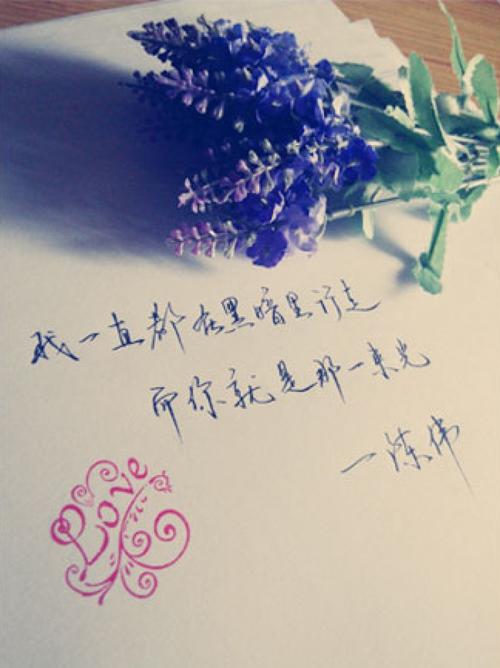 我一直都在黑暗里行走
而你就是那一束光
—陈伟
Love